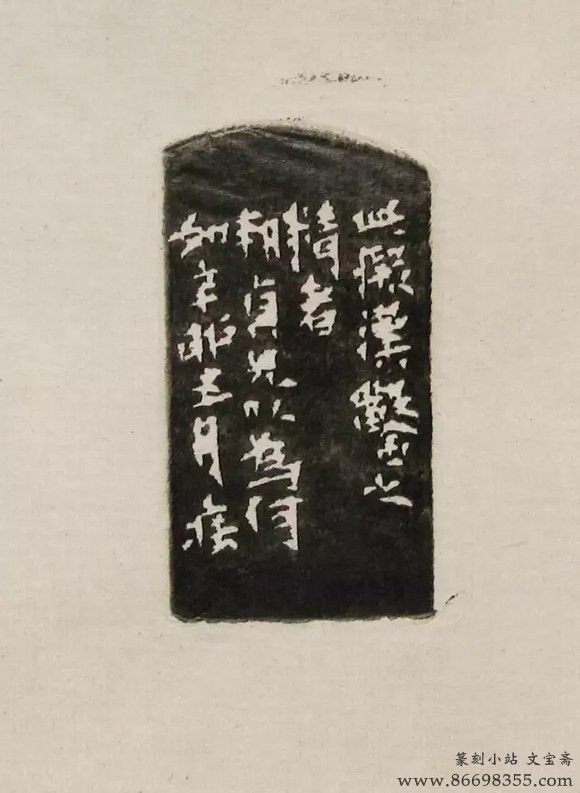 此擬漢鑿之
精者
貞兄以為何
如辛卯五月
篆刻小站 文宝斋
www.86698355.com